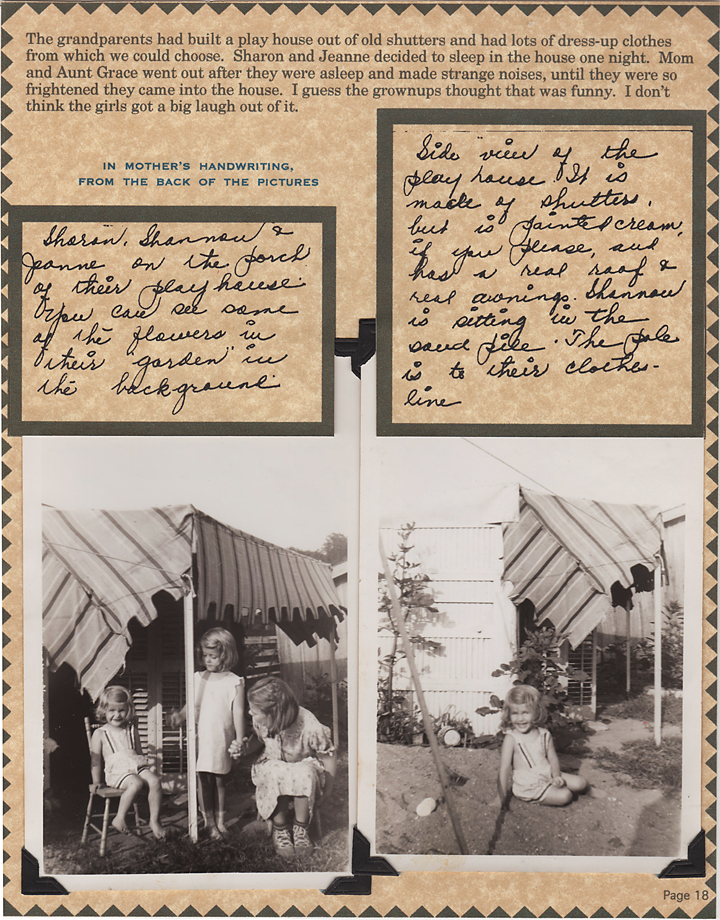 The grandparents had built a play house out of old shutters and had lots of dress-up clothes
from which we could choose.  Sharon and Jeanne decided to sleep in the house one night.  Mom
and Aunt Grace went out after they were asleep and made strange noises, until they were so
frightened they came into the house.  I guess the grownups thought that was funny.  I don't
think the girls got a big laugh out of it.
IN MOTHER'S HANDWRITING,
FROM THE BACK OF THE PICTURES
Sharon, Shannon &
Jeanne on the porch
of their play house.
You can see some
of the flowers in
their "garden" in
the background.
Side view of the
play house. It is
made of shutters,
but is painted cream,
if you please, and
has a real roof &
real awnings. Shannon
is sitting in the
sand pile. The pole
is to their clothes-
line
Page 18